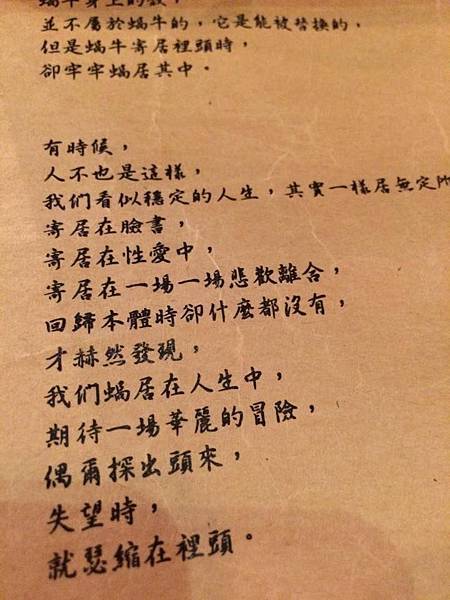 蝸牛身上的殼，
並不屬於蝸牛的，它是能被替換的，
但是蝸牛寄居裡頭時，
卻牢牢蝸居其中。
有時候，
人不也是這樣，
我們看似穩定的人生，其實一樣居無定所
寄居在臉書，
寄居在性愛中，
寄居在一場一場悲歡離合，
回歸本體時卻什麼都沒有，
才赫然發現，
我們蝸居在人生中，
期待一場華麗的冒險，
偶爾探出頭來，
失望時，
就瑟縮在裡頭。